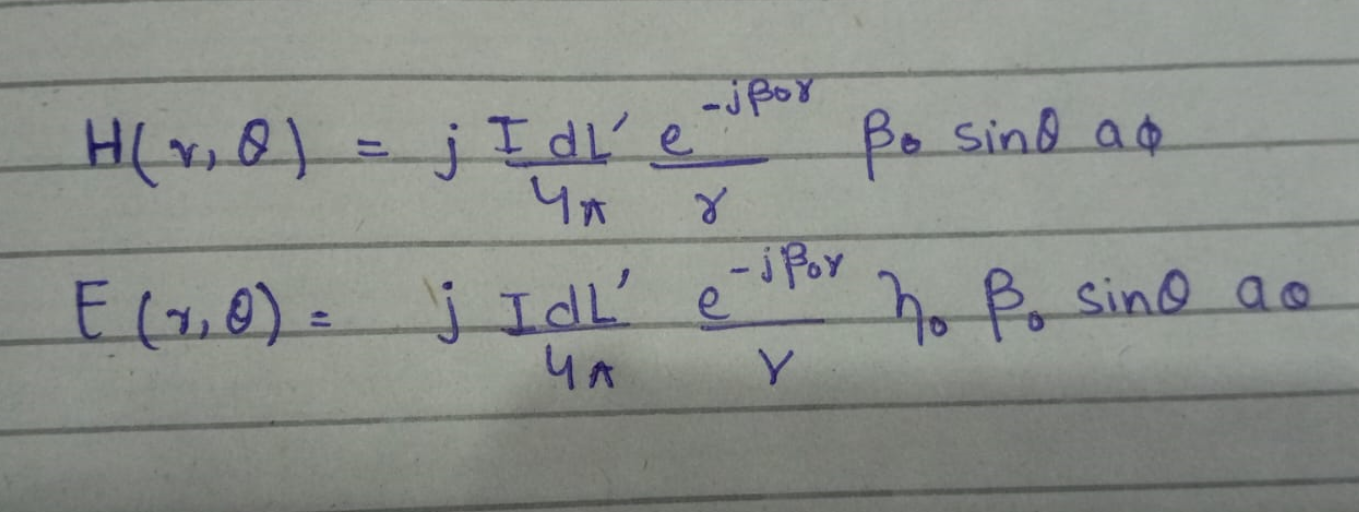 H(r, θ) = j I dL′/4π e^-jβ₀r/r β₀ sinθ aϕ
E(r, θ) = j I dL′/4π e^-jβ₀r/r η₀ β₀ sinθ aθ